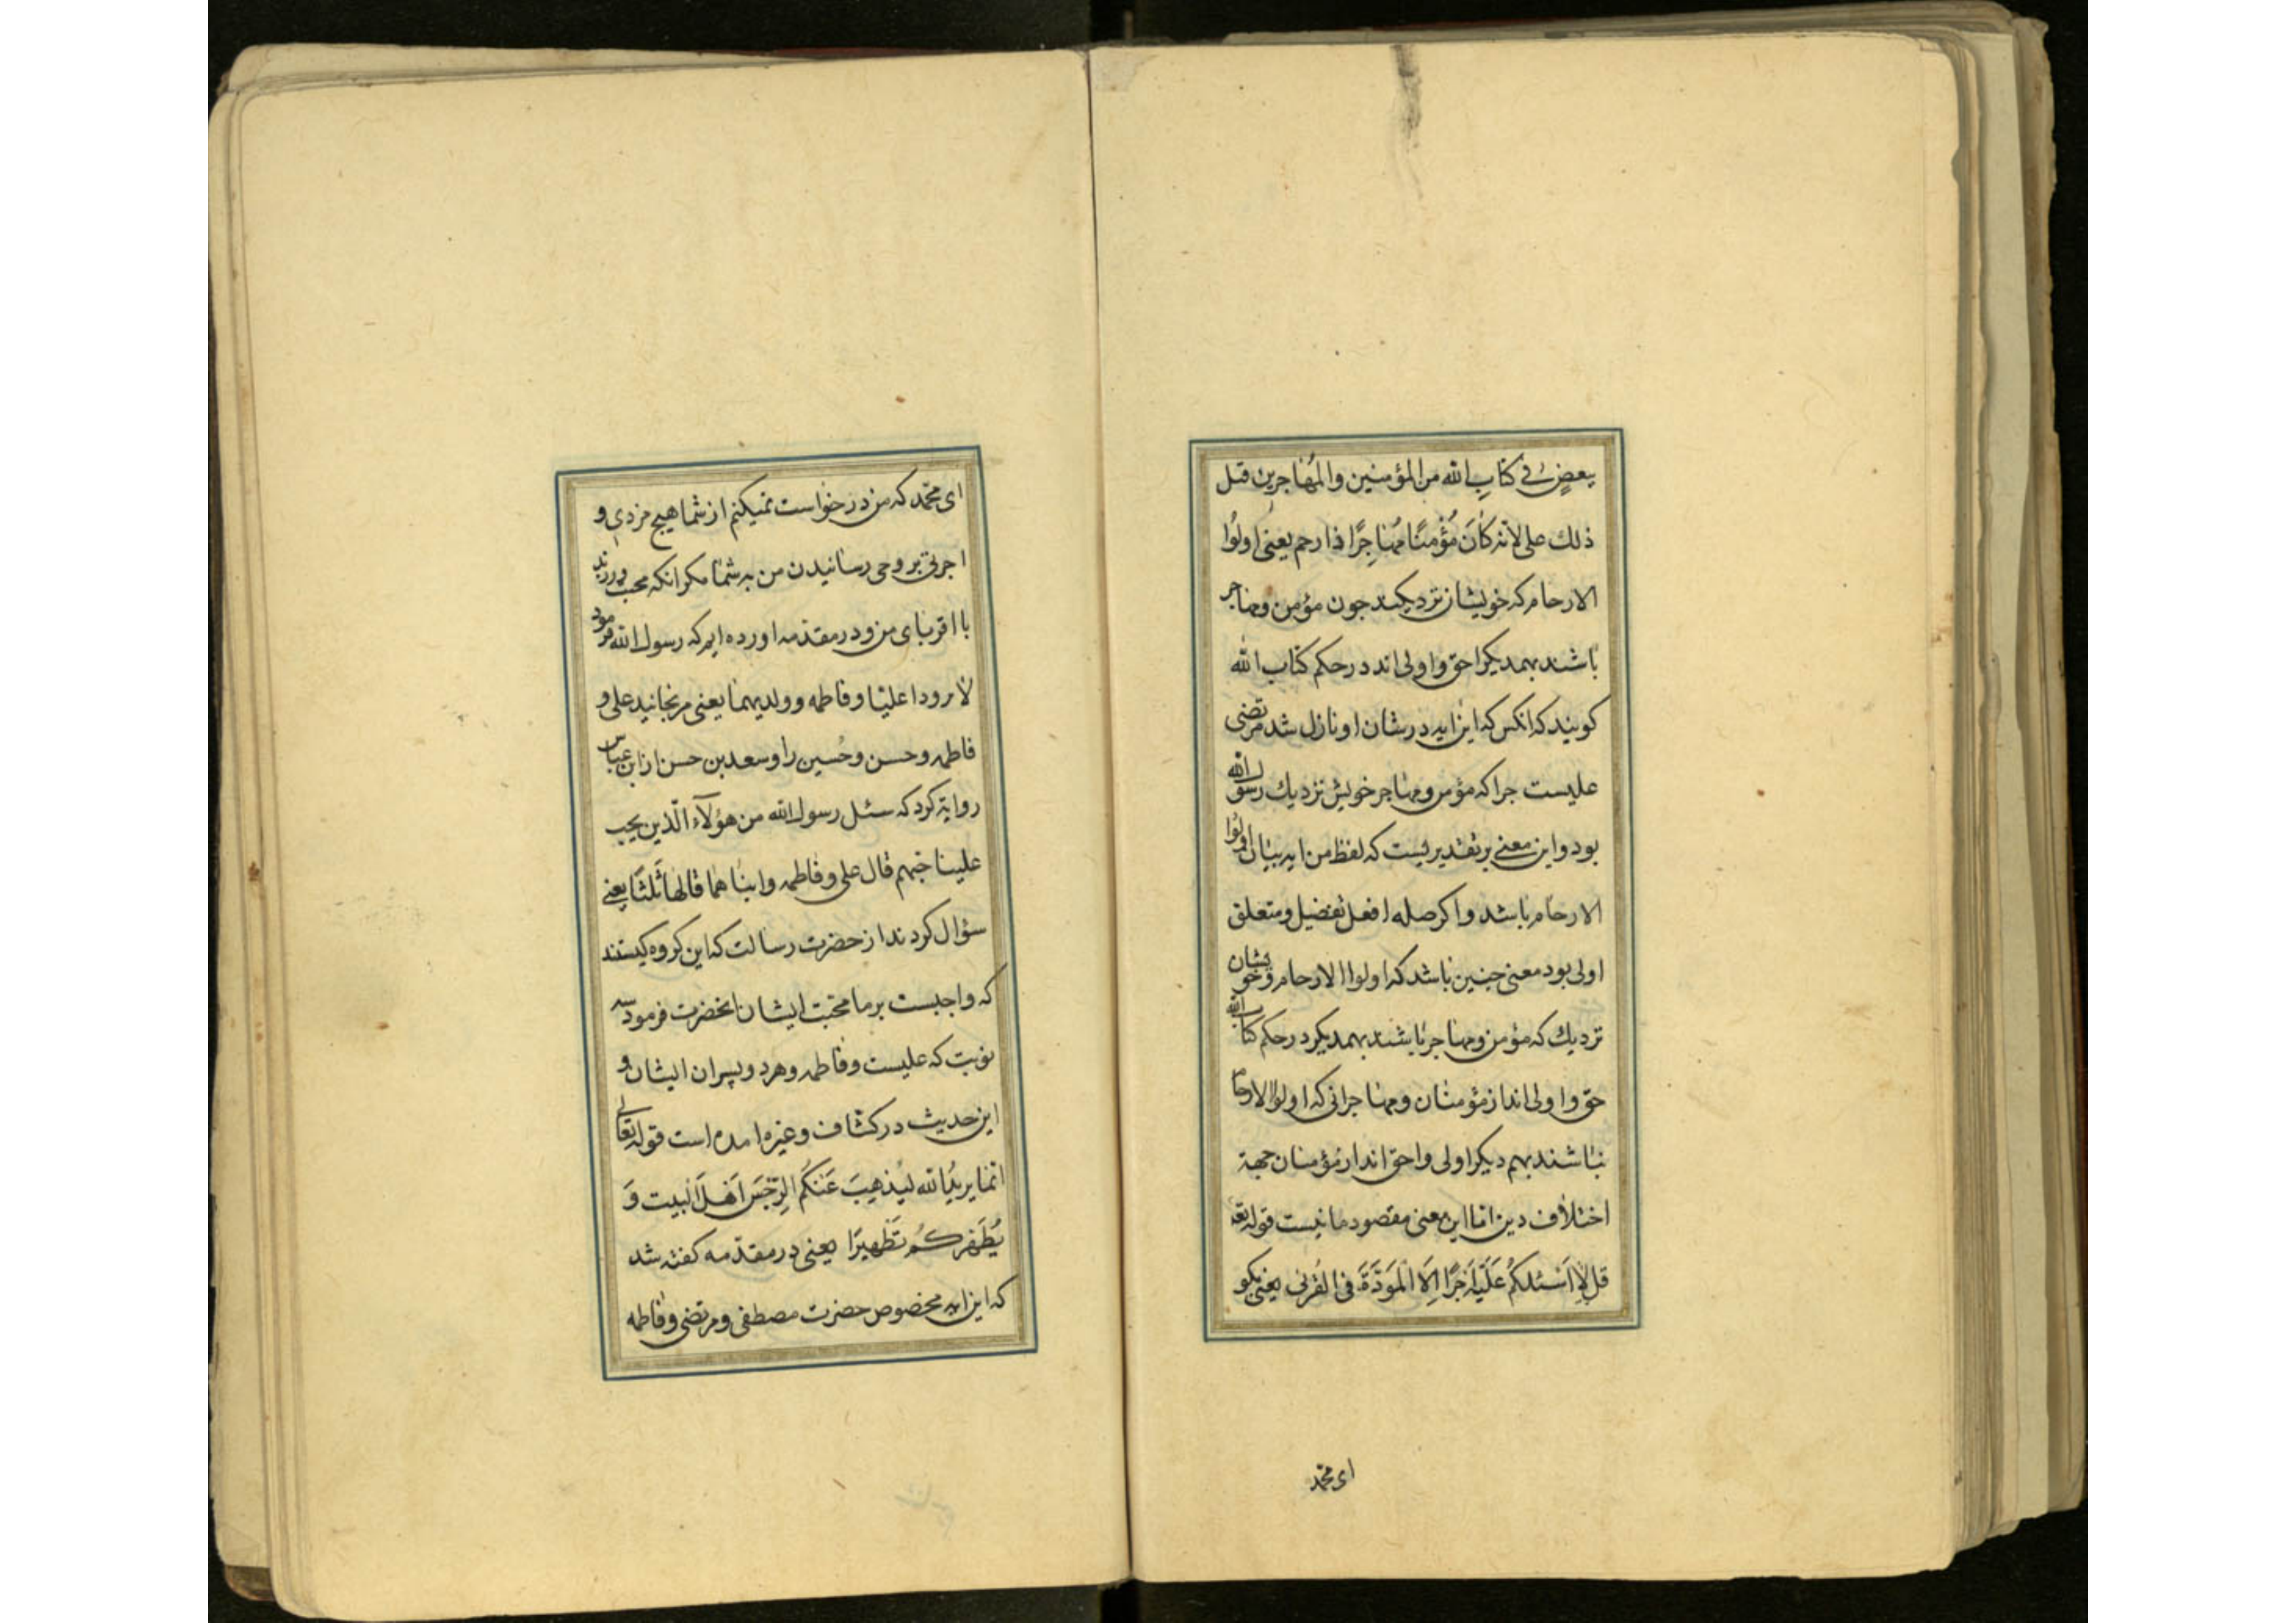 بعضٍ في كتابِ الله من المؤمنین والمُهاجرین قیل
ذلك علی لانّه كَانَ مُؤْمِنًا مُهَاجِرًا ذا رحم یعنی اولُوا
الارحام که خویشان نزدیکند جون مؤمن و مهاجر
باشند بهمدیکر احق و اولی اند در حکم کتاب الله
کویند که انکس که این ایه در شان او نازل شد مرتضی
علیست جرا که مؤمن و مهاجر خویش نزدیك رسول الله
بود و این معنی بر تقدیریست که لفظ من ایه بیان اولُوا
الارحام باشد و اکر صله افعل تفضیل و متعلق
اولی بود معنی جنین باشد که اولوا الارحام و خویشان
نزدیك که مؤمن و مهاجر باشند بهمدیکر در حکم کتاب الله
حق و اولی اند از مؤمنان و مهاجرانی که اولوا الارحام
نباشند بهم دیکر اولی و احق اند از مؤمنان جهة
اختلاف دین اما این معنی مقصود ما نیست قوله تعه
قل لا اَسْئلکُم عَلَیْهِ اَجْرًا اِلَّا الْمَوَدَّةَ فی القُربی یعنی بکو
ای محمد
ای محمّد که من درخواست نمیکنم از شما هیج مزدی و
اجرتی بر وحی رسانیدن من به شما مکر انکه محب ورزید
با اقربای من و در مقدّمه اورده ایم که رسول الله فرمود
لا مرودا علیّا و فاطمه و ولدیهما یعنی مرنجانید علی و
فاطمه و حسن و حُسین را و سعد بن حسن از ابن عباس
روایة کرد که سئل رسول الله من هؤلآء الّذین یجب
علینا حبهم قال علی و فاطمه و ابناهما قالها ثَلثًا یعنی
سؤال کردند از حضرت رسالت که این کروه کیستند
که واجبست بر ما محبّت ایشان انحضرت فرمود سه
نوبت که علیست و فاطمه و هر دو پسران ایشان و
این حدیث در کشاف و غیره امده است قوله تعالی
انّما یریدُ الله لیُذهِبَ عَنْکُم الرِّجْسَ اَهْلَ الْبیت وَ
یُطَهِّرَکُمْ تَطْهیرًا یعنی در مقدّمه کفته شد
که این ایه مخصوص حضرت مصطفی و مرتضی و فاطمه